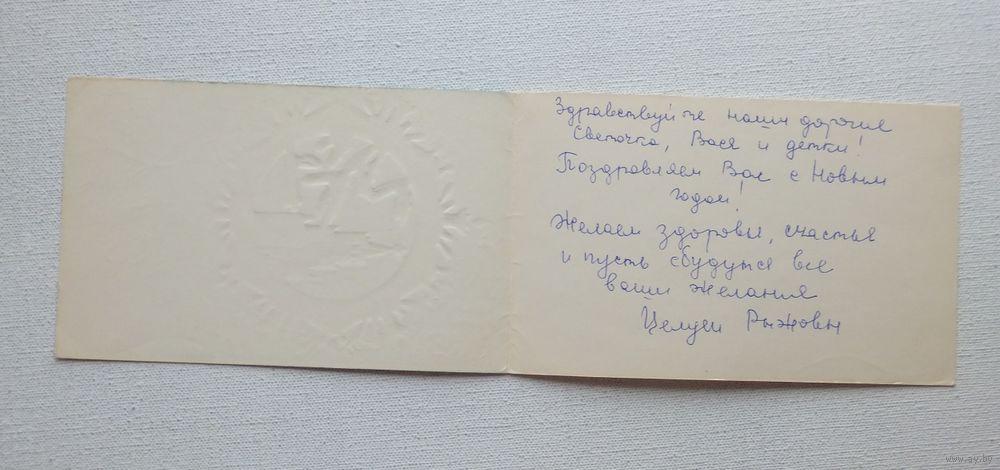 Здравствуйте наши дорогие
Светочка, Вася и детки!
Поздравляем Вас с Новым
годом!
Желаем здоровья, счастья
и пусть сбудутся все
ваши желания
Целуем Рыжовы
www.ay.by